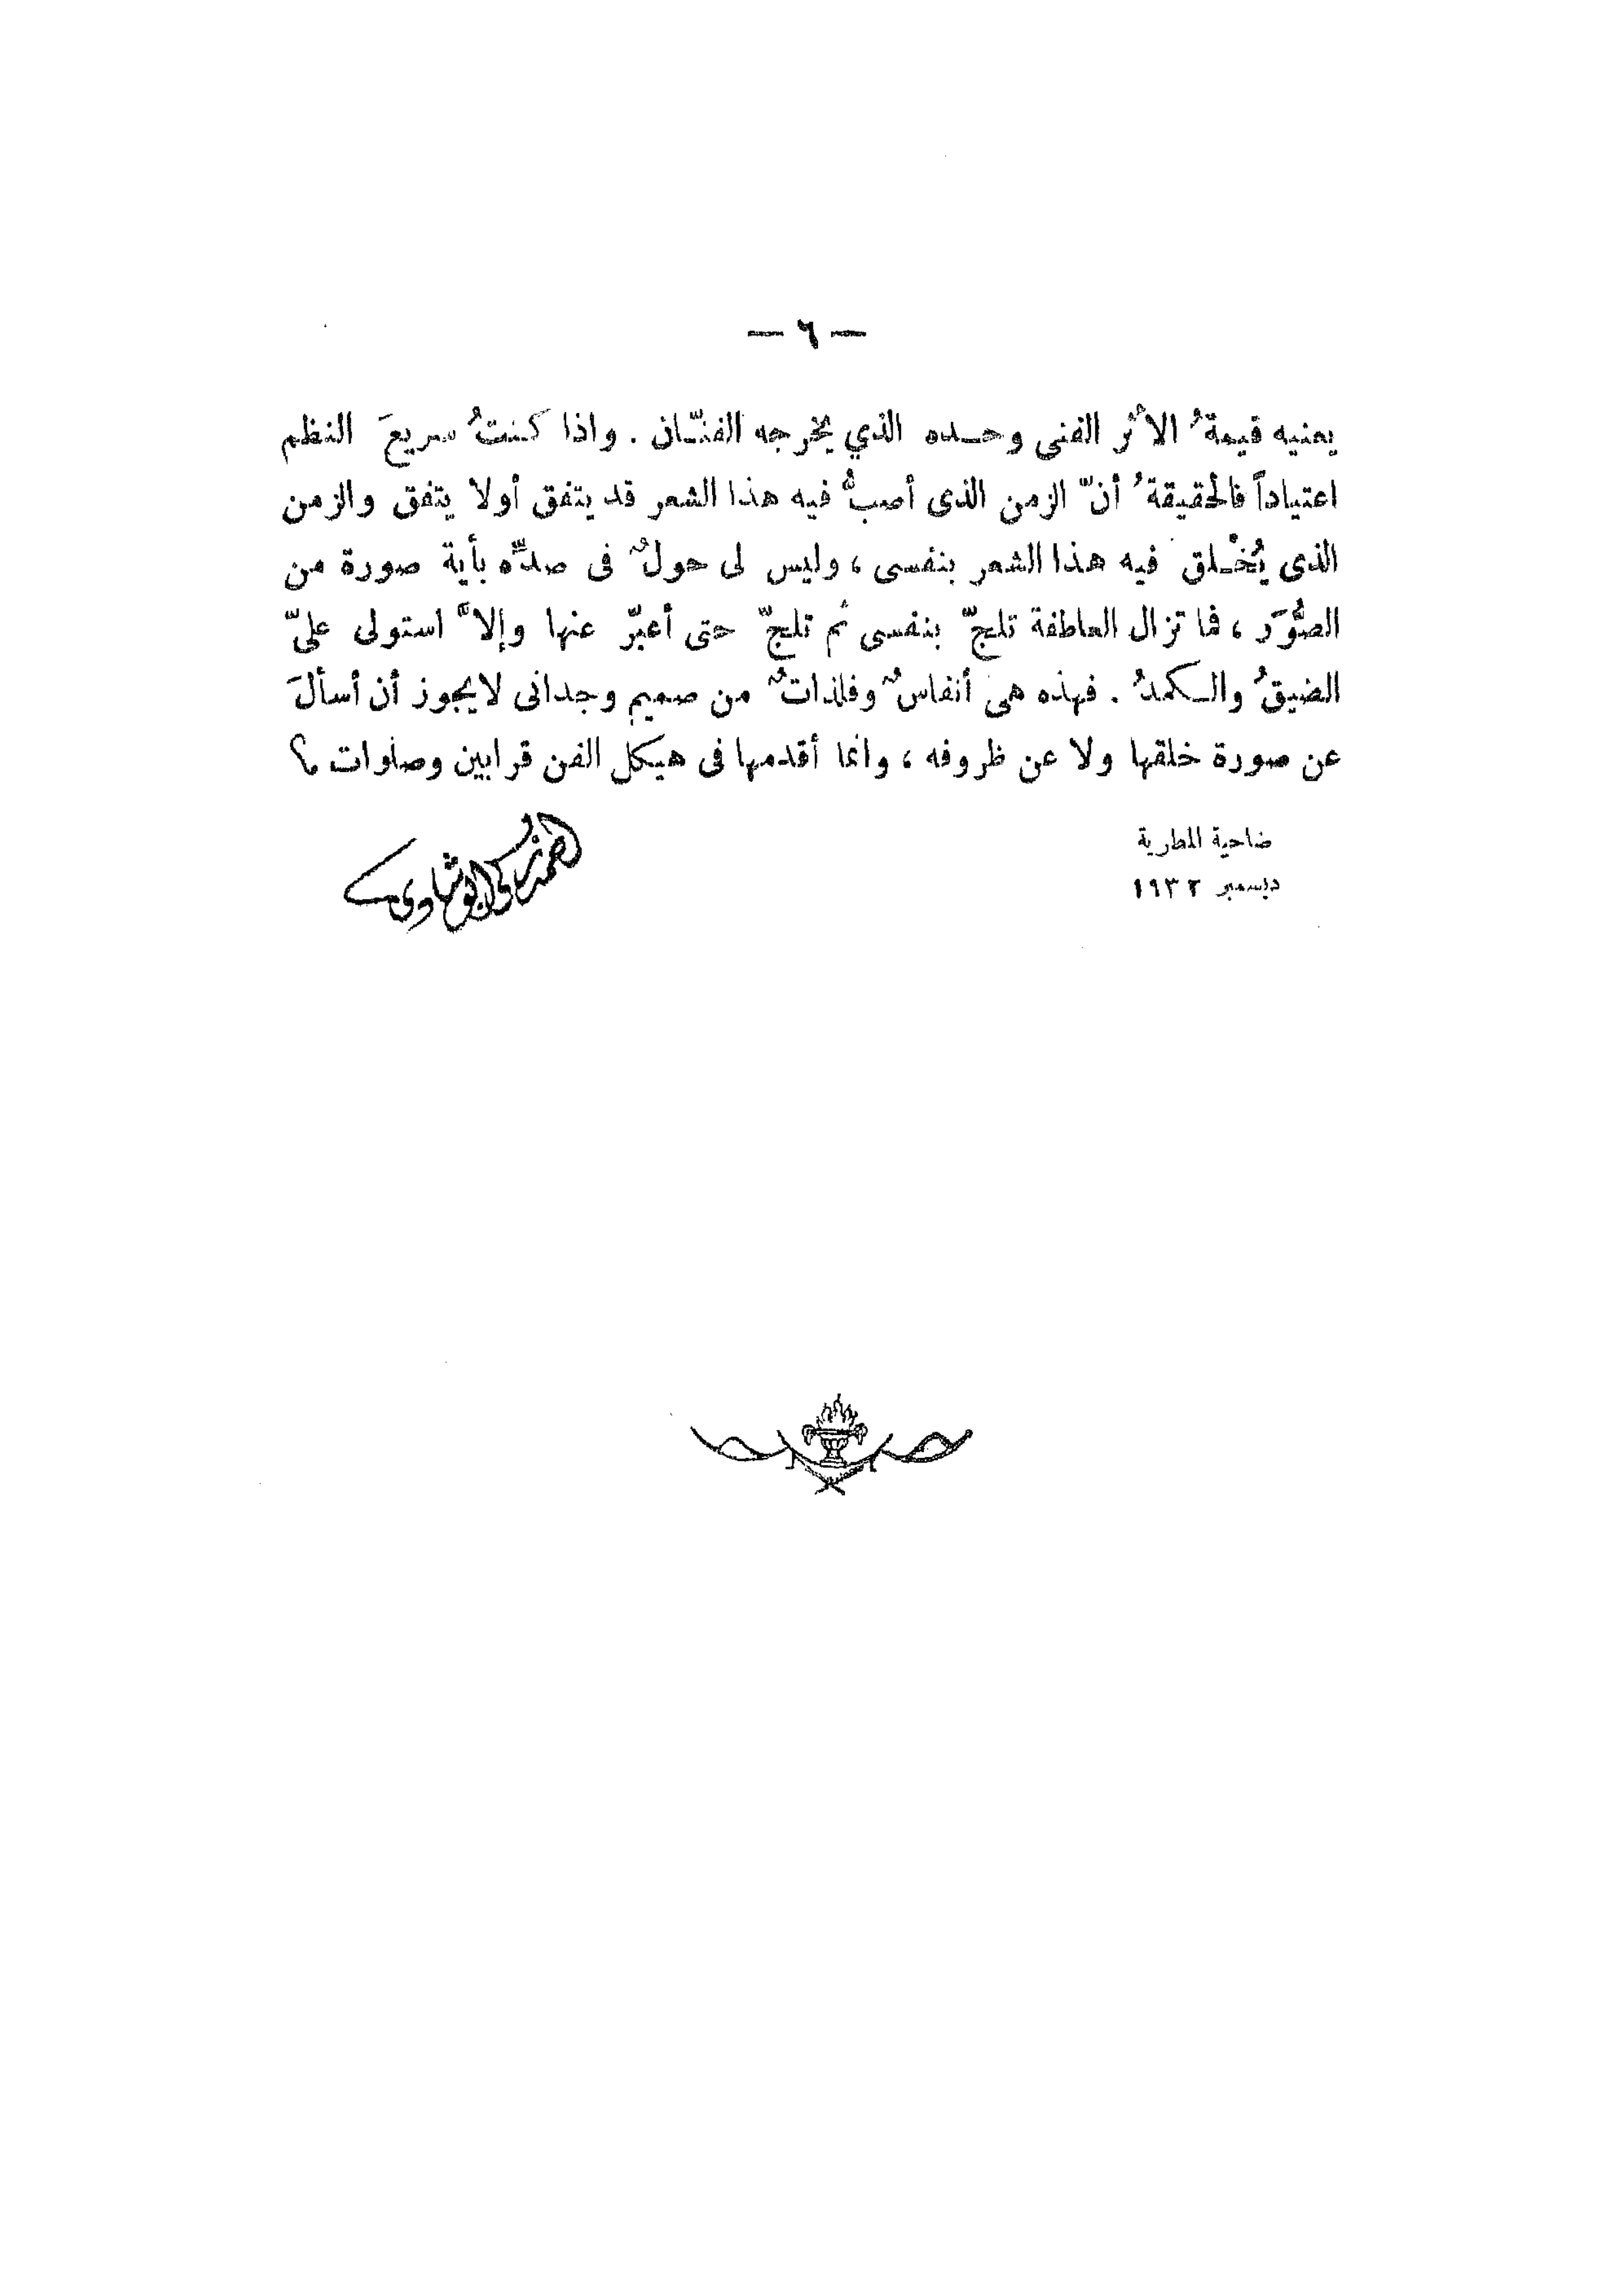 — ٦ —
يعنيه قيمةُ الأثر الفنى وحـــده الذي يخرجه الفنّـان . واذا كـنتُ سريعَ النظم
اعتياداً فالحقيقةُ أنّ الزمن الذى أصبُّ فيه هذا الشعر قد يتفق أولا يتفق والزمن
الذى يُخْـلق فيه هذا الشعر بنفسى ، وليس لى حولٌ فى صدِّه بأية صورة من
الصُّوَر ، فما تزال العاطفة تلجّ بنفسى ثم تلجّ حتى أعبّر عنها وإلاَّ استولى علىّ
الضيقُ والـكمدُ . فهذه هى أنفاسٌ وفلذاتٌ من صميم وجدانى لايجوز أن أسألَ
عن صورة خلقها ولا عن ظروفه ، وانما أقدمها فى هيكل الفن قرابين وصلوات ؟
ضاحية المطرية
ديسمبر ١٩٣٢
احمد زكى ابو شادى